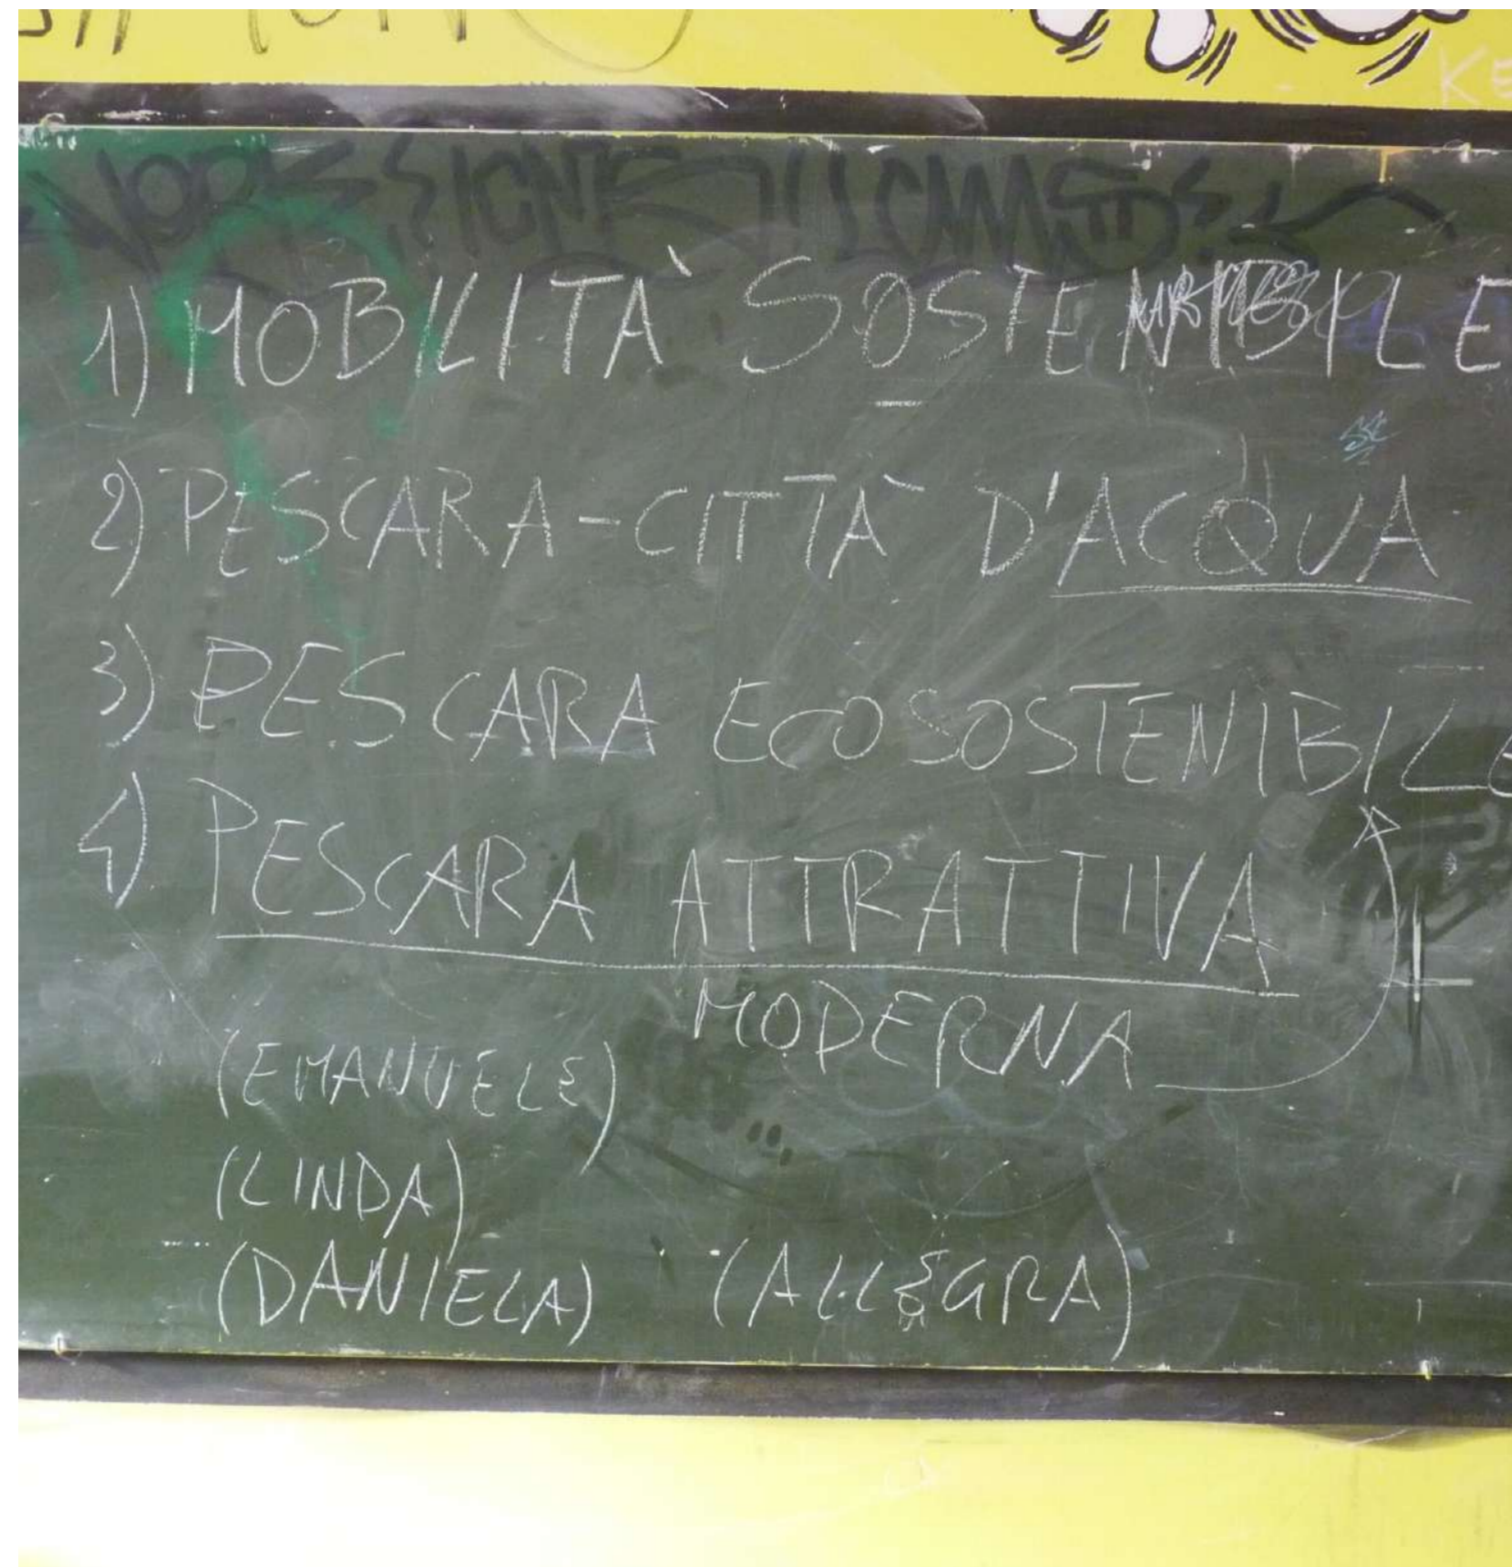 1) MOBILITÀ SOSTENIBILE
2) PESCARA-CITTÀ D'ACQUA
3) PESCARA ECOSOSTENIBILE
4) PESCARA ATTRATTIVA
MODERNA
(EMANUELE)
(LINDA)
(DANIELA) (ALLEGRA)